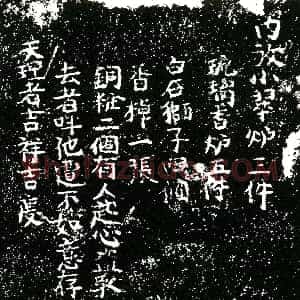 內放小翠炉二件
琉璃吉炉五件
白石獅子個
棹一張
銅二個有人起心
去者叫他不如意存
天理者吉祥善慶